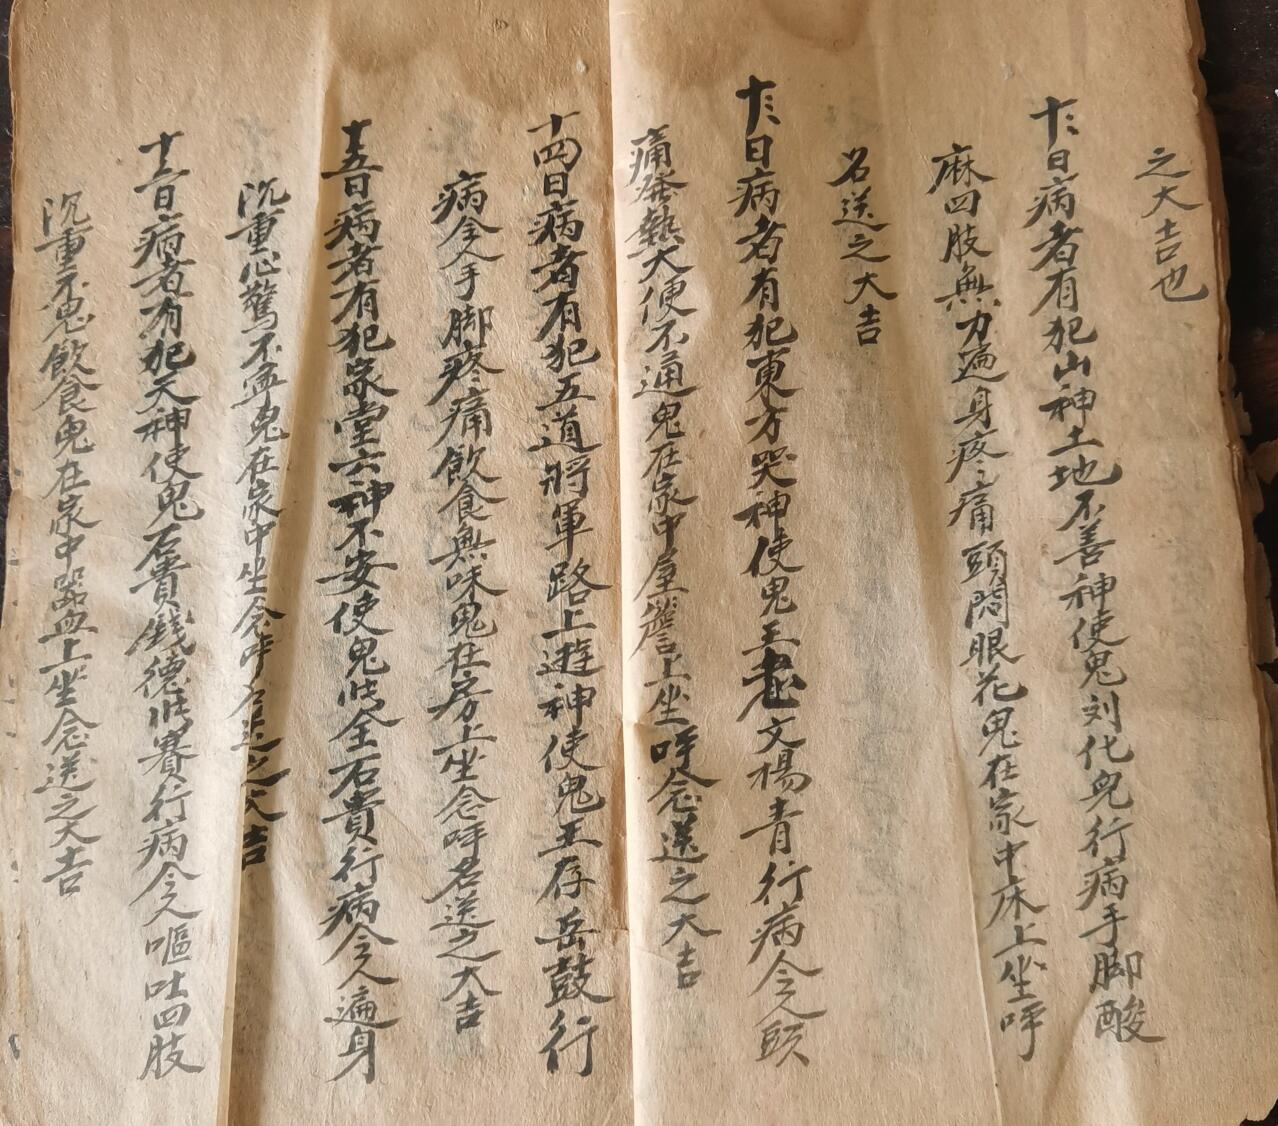 之大吉也
十二日病者有犯山神土地不善神使鬼刘化鬼行病手脚酸
麻四肢無力遍身疼痛頭悶眼花鬼在家中床上坐呼
名送之大吉
十三日病者有犯東方哭神使鬼王老文楊青行病令人頭
痛發熱大便不通鬼在家中屋簷上坐呼念送之大吉
十四日病者有犯五道將軍路上遊神使鬼王存岳鼓行
病令人手脚疼痛飲食無味鬼在房上坐念呼名送之大吉
十五日病者有犯家堂六神不安使鬼全石貴行病令人遍身
沉重心驚不寧鬼在家中坐念呼名送之大吉
十六日病者有犯天神使鬼石貴錢德賽行病令人嘔吐四肢
沉重不思飲食鬼在家中器皿上坐念送之大吉